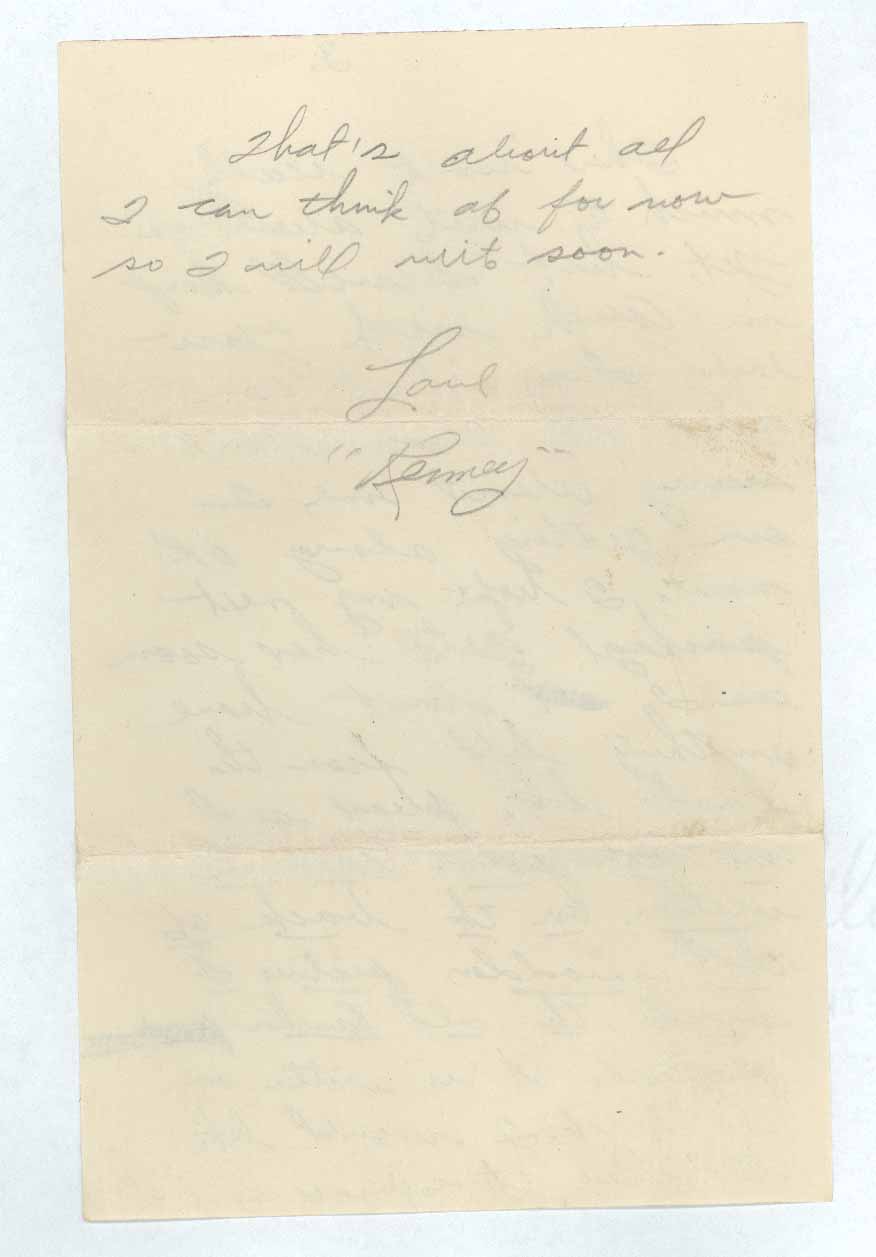 That's about all
I can think of for now
so I will writ soon.
Love
"Kenney"